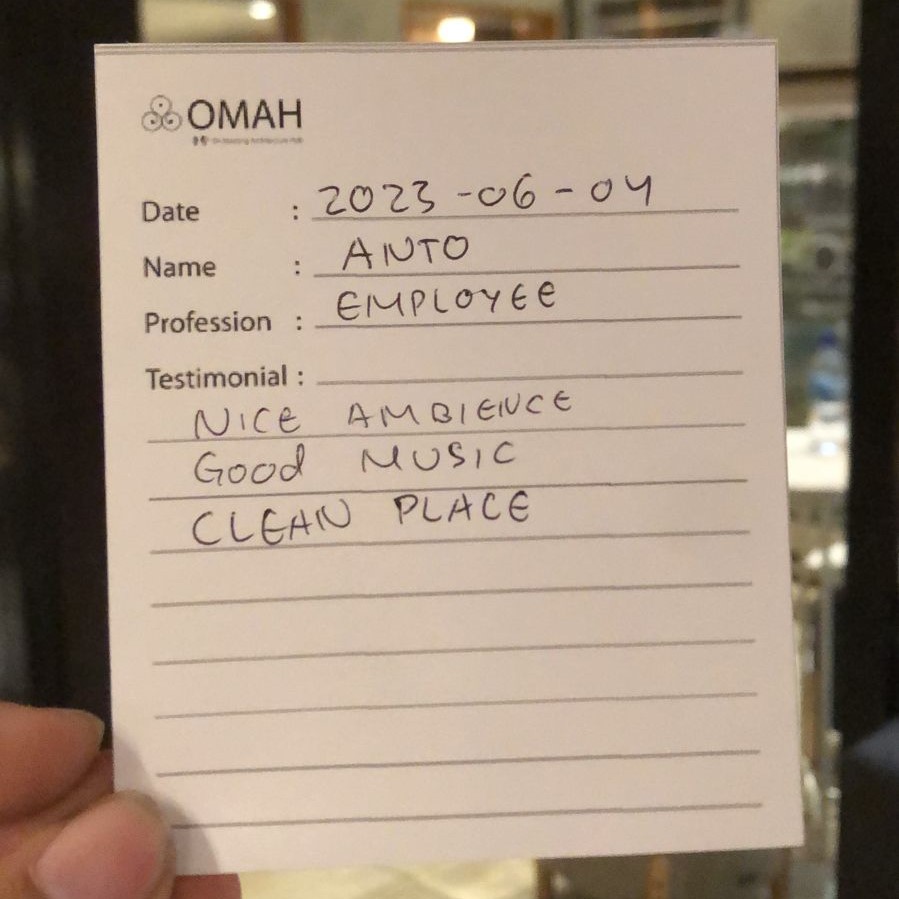 OMAH
Date : 2023-06-04
Name : ANTO
Profession : EMPLOYEE
Testimonial :
NICE AMBIENCE
Good MUSIC
CLEAN PLACE